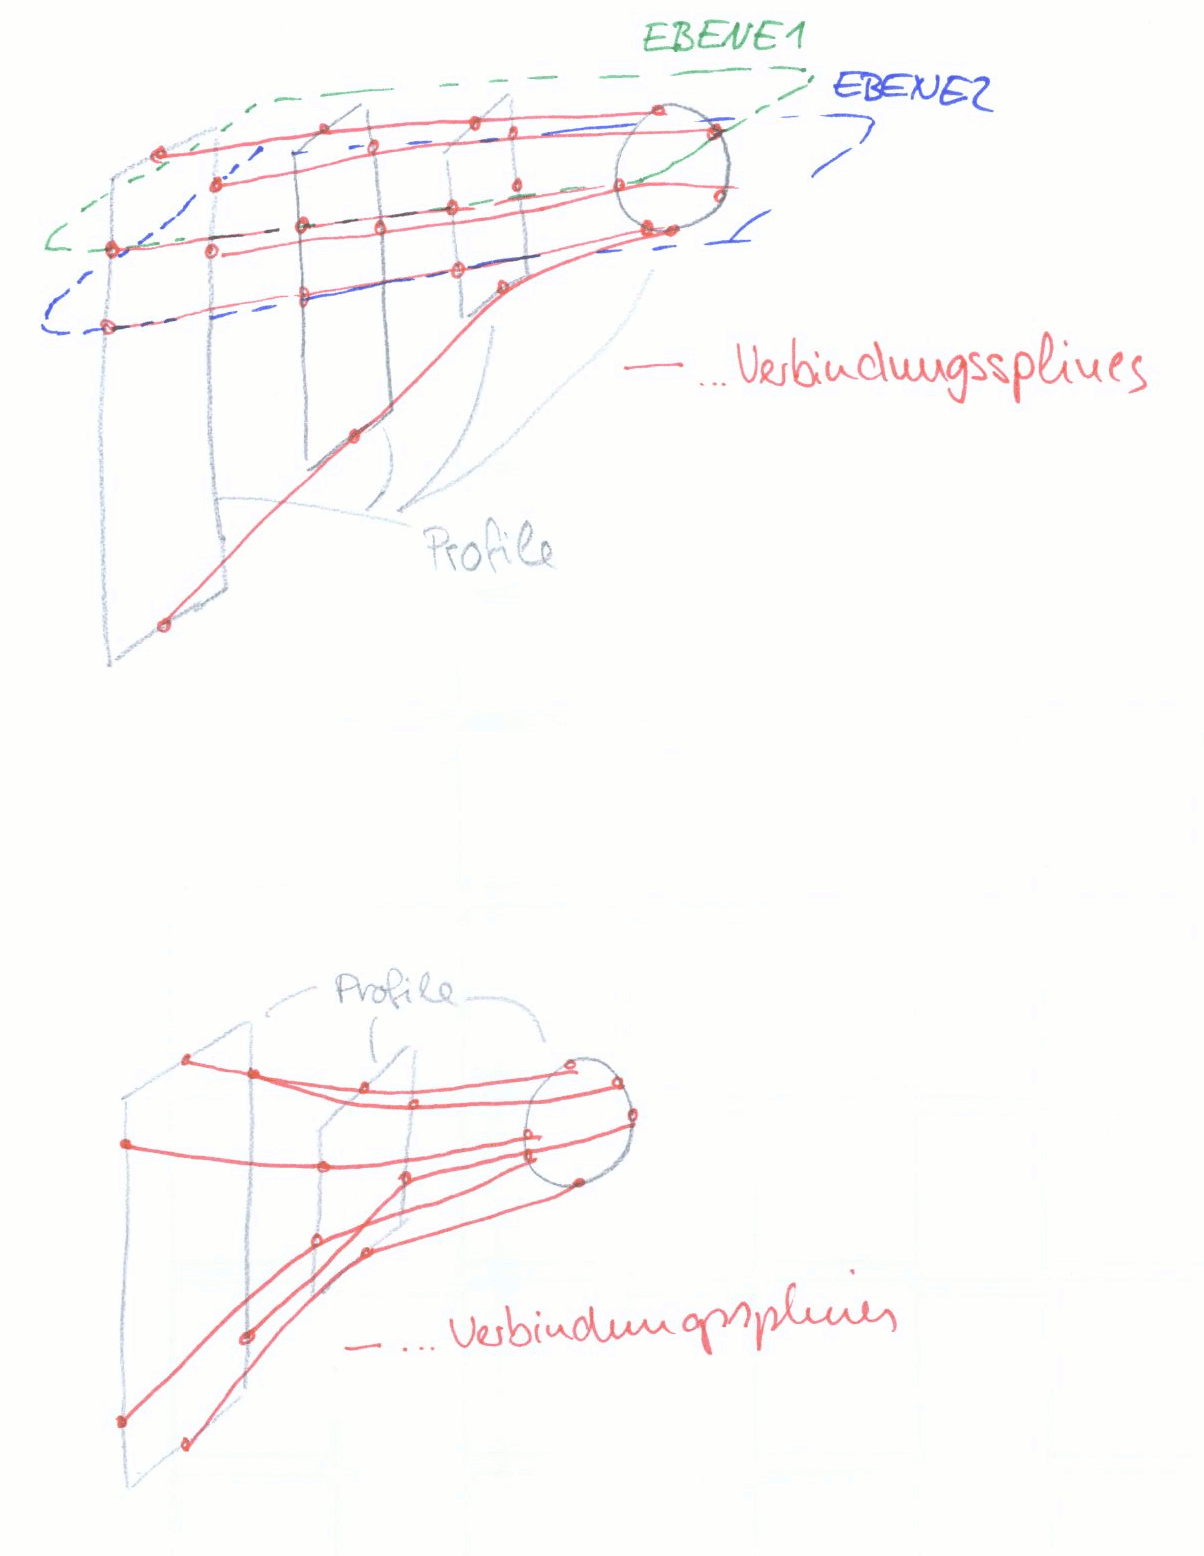 EBENE1
EBENE2
— ... Verbindungssplines
Profile
Profile
— ... Verbindungssplines